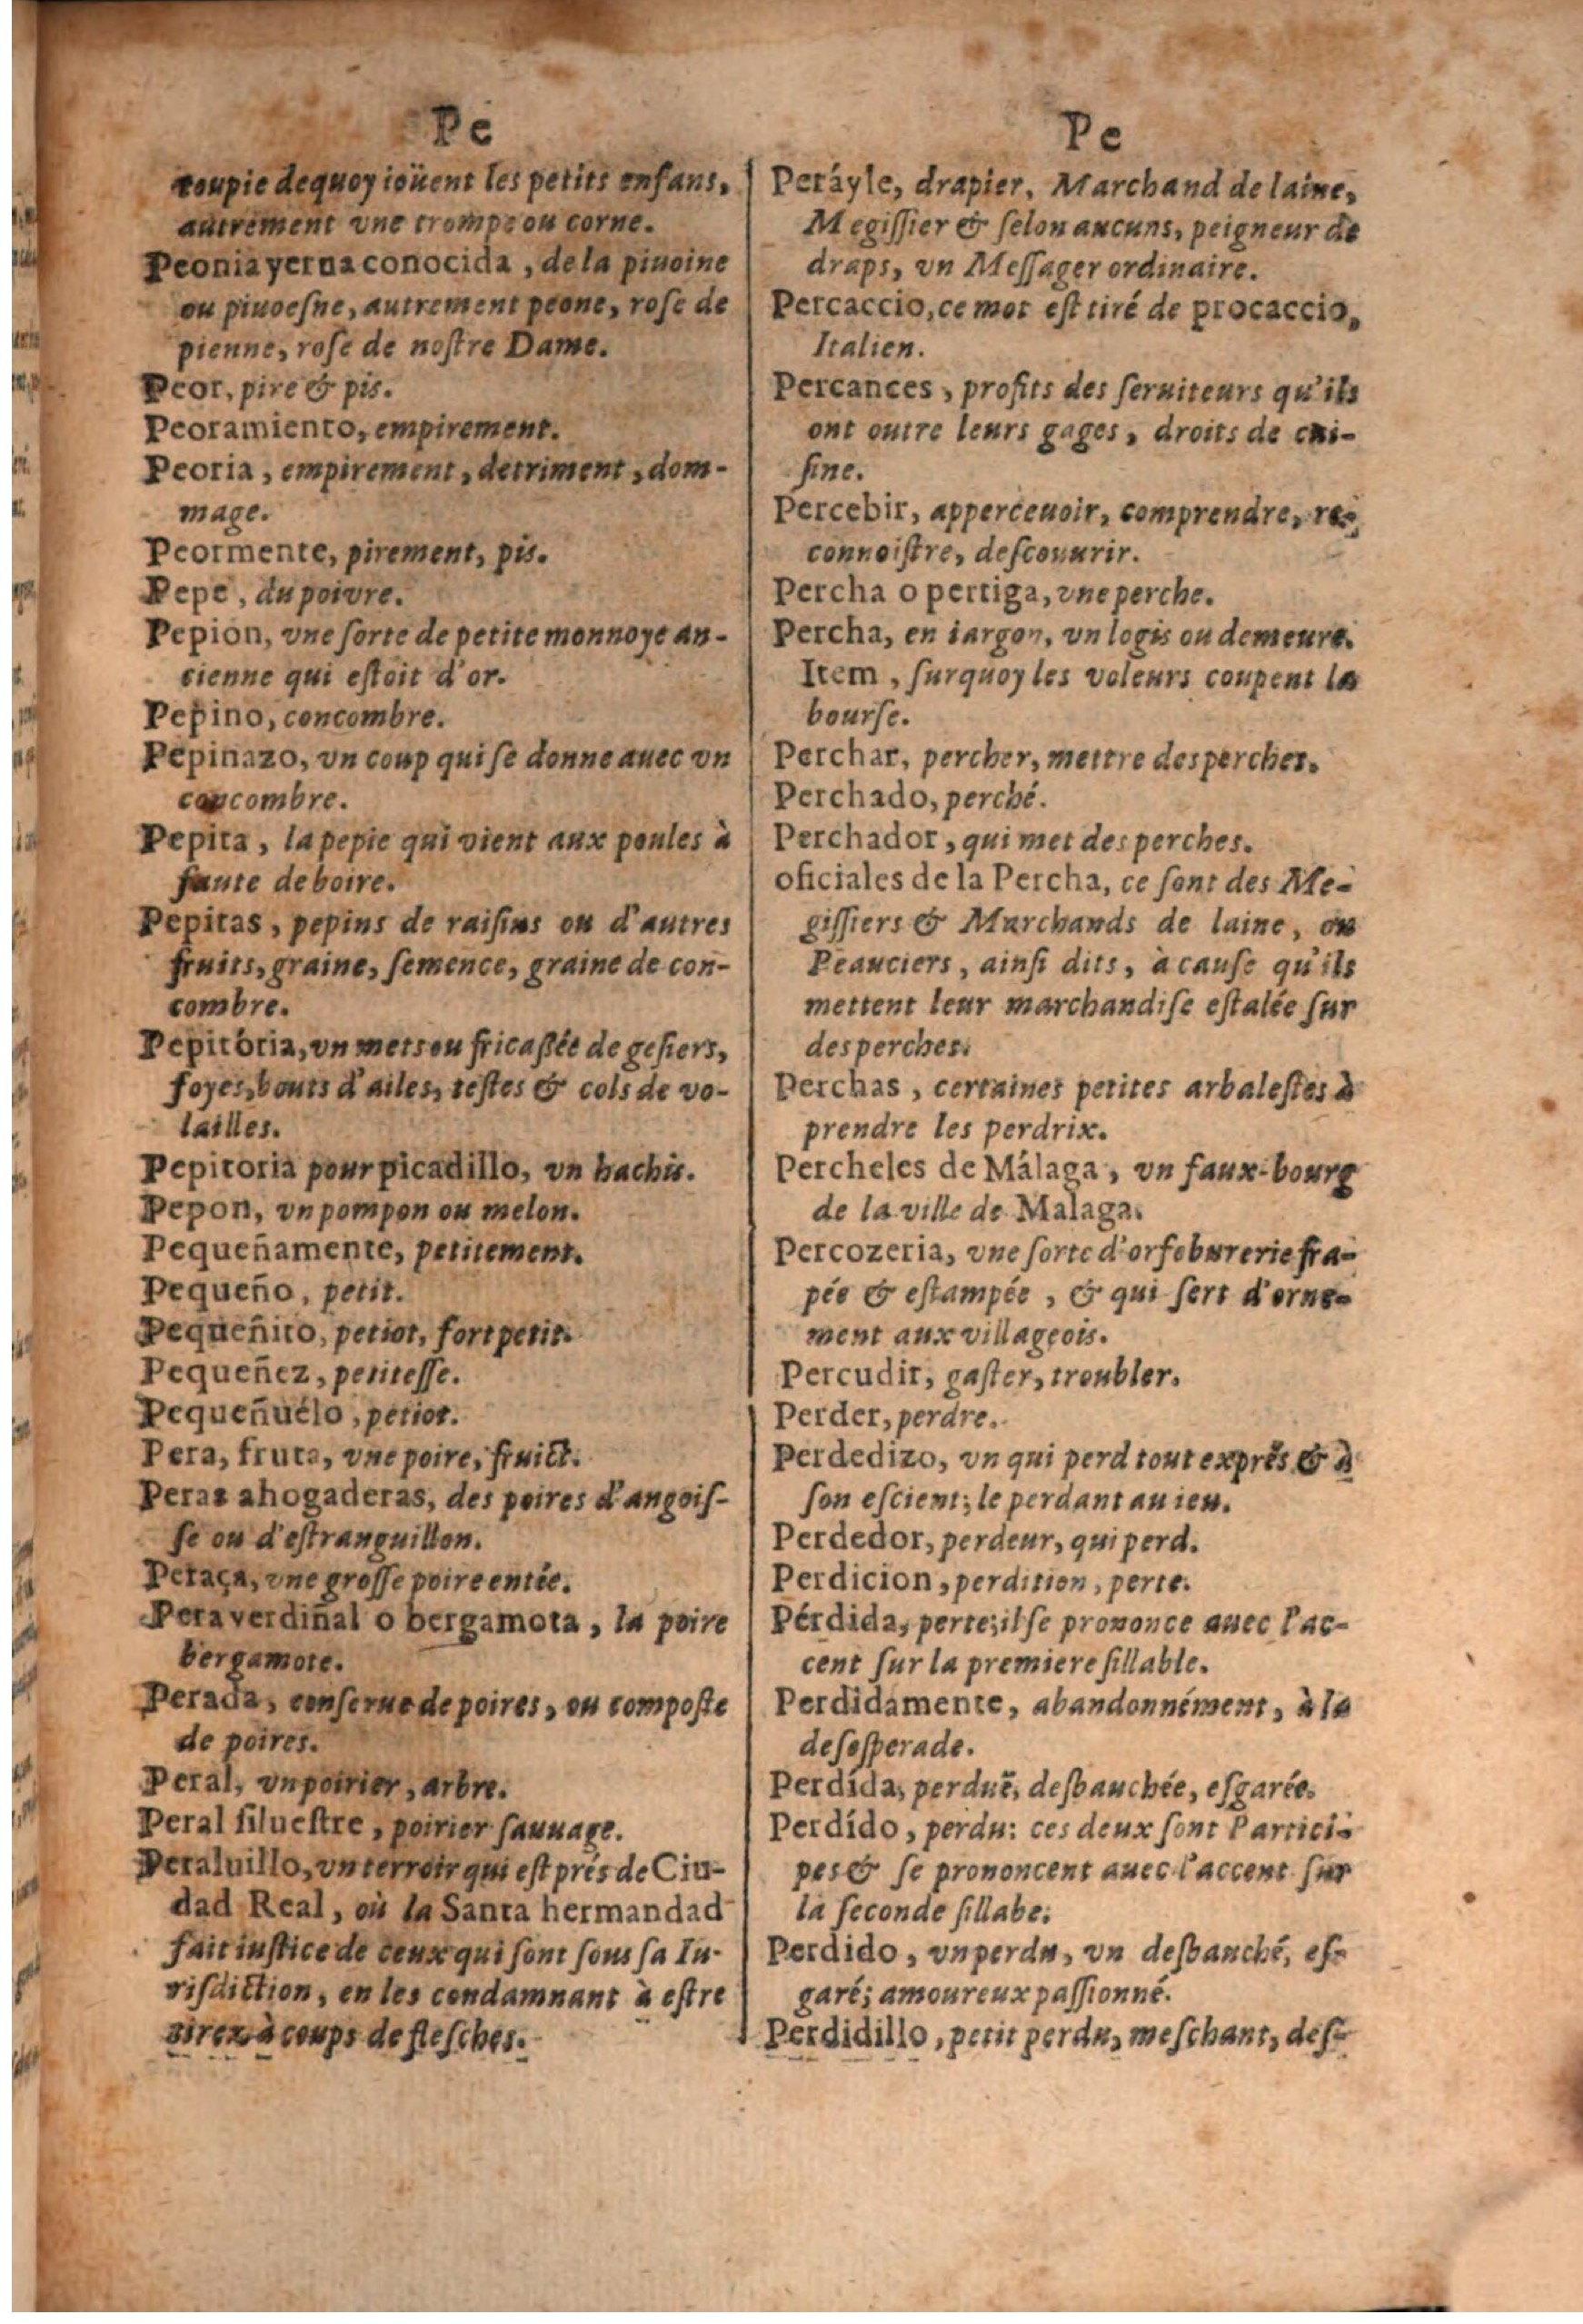 Pe
toupie dequoy ioüent les petits enfans,
autrement vne trompe ou corne.
Peonia yerua conocida, de la piuoine
ou piuoesne, autrement peone, rose de
pienne, rose de nostre Dame.
Peor, pire & pis.
Peoramiento, empirement.
Peoria, empirement, detriment, dom-
mage.
Peormente, pirement, pis.
Pepe, du poivre.
Pepion, vne sorte de petite monnoye an-
cienne qui estoit d'or.
Pepino, concombre.
Pepinazo, vn coup qui se donne auec vn
concombre.
Pepita, la pepie qui vient aux poules à
faute de boire.
Pepitas, pepins de raisins ou d'autres
fruits, graine, semence, graine de con-
combre.
Pepitória, vn mets ou fricassée de gesiers,
foyes, bouts d'ailes, testes & cols de vo-
lailles.
Pepitoria pour picadillo, vn hachis.
Pepon, vn pompon ou melon.
Pequeñamente, petitement.
Pequeño, petit.
Pequeñito, petiot, fort petit.
Pequeñez, petitesse.
Pequeñuélo, petiot.
Pera, fruta, vne poire, fruict.
Peras ahogaderas, des poires d'angois-
se ou d'estranguillon.
Peraça, vne grosse poire entée.
Pera verdiñal o bergamota, la poire
bergamote.
Perada, conserue de poires, ou composte
de poires.
Peral, vn poirier, arbre.
Peral siluestre, poirier sauuage.
Peraluillo, vn terroir qui est prés de Ciu-
dad Real, où la Santa hermandad
fait iustice de ceux qui sont sous sa Iu-
risdiction, en les condamnant à estre
tirez à coups de flesches.
Pe
Peráyle, drapier, Marchand de laine,
Megissier & selon aucuns, peigneur de
draps, vn Messager ordinaire.
Percaccio, ce mot est tiré de procaccio,
Italien.
Percances, profits des seruiteurs qu'ils
ont outre leurs gages, droits de cui-
sine.
Percebir, apperceuoir, comprendre, re-
connoistre, descouurir.
Percha o pertiga, vne perche.
Percha, en iargon, vn logis ou demeure.
Item, surquoy les voleurs coupent la
bourse.
Perchar, percher, mettre des perches.
Perchado, perché.
Perchador, qui met des perches.
oficiales de la Percha, ce sont des Me-
gissiers & Marchands de laine, ou
Peauciers, ainsi dits, à cause qu'ils
mettent leur marchandise estalée sur
des perches.
Perchas, certaines petites arbalestes à
prendre les perdrix.
Percheles de Málaga, vn faux-bourg
de la ville de Malaga.
Percozeria, vne sorte d'orfeburerie fra-
pée & estampée, & qui sert d'orne-
ment aux villageois.
Percudir, gaster, troubler.
Perder, perdre.
Perdedizo, vn qui perd tout exprés & à
son escient; le perdant au ieu.
Perdedor, perdeur, qui perd.
Perdicion, perdition, perte.
Pérdida, perte; il se prononce auec l'ac-
cent sur la premiere sillable.
Perdidamente, abandonnément, à la
desesperade.
Perdída, perduë, desbauchée, esgarée.
Perdído, perdu: ces deux sont Partici-
pes & se prononcent auec l'accent sur
la seconde sillabe.
Perdido, vn perdu, vn desbauché, es-
garé; amoureux passionné.
Perdidillo, petit perdu, meschant, des-